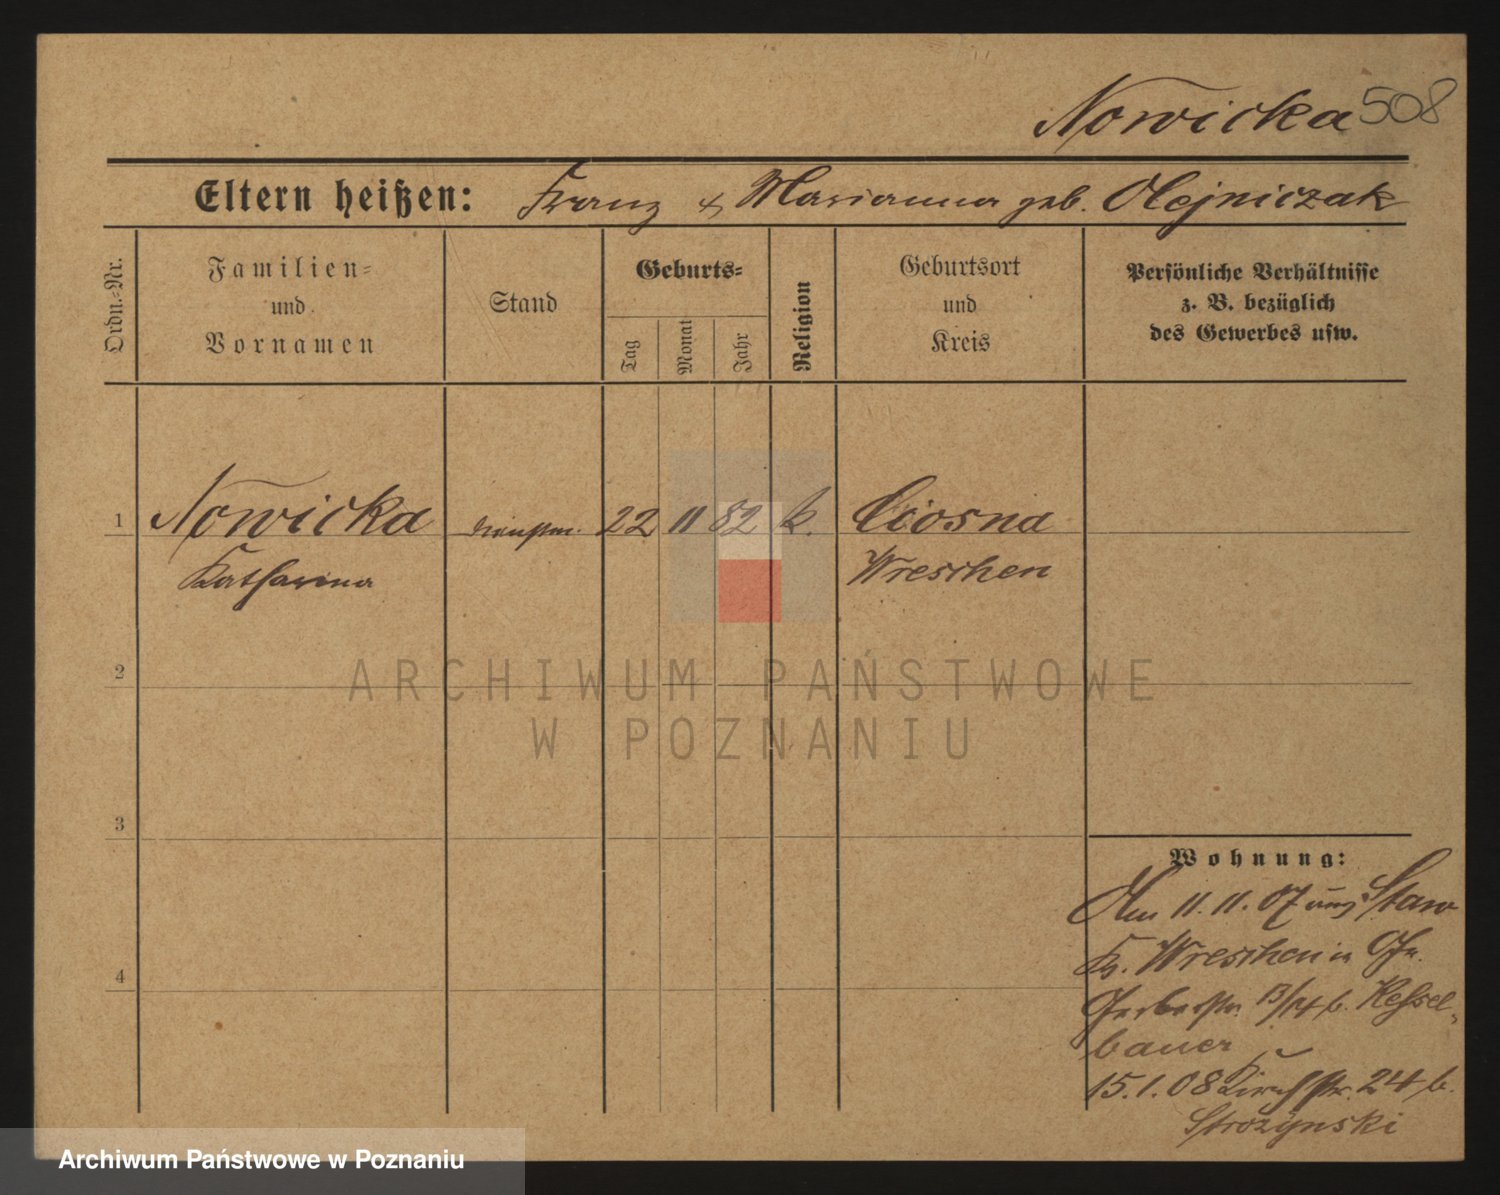 Nowicka 508
Eltern heißen: Franz & Marianna geb. Olejniczak
Ordn.-Nr.
Familien-
und
Vornamen
Stand
Geburts-
Tag
Monat
Jahr
Religion
Geburtsort
und
Kreis
Persönliche Verhältnisse
z. B. bezüglich
des Gewerbes usw.
1 Nowicka 22 11 82 k. Ciosna
Katharina Wreschen
2
3
4
Wohnung:
Am 11.11.07 aus Staw
Kr. Wreschen in
Gerberstr. 13/14 b. Kessel-
bauer
15.1.08 Kirchstr. 24 b.
Strozynski
ARCHIWUM PAŃSTWOWE
W POZNANIU
Archiwum Państwowe w Poznaniu